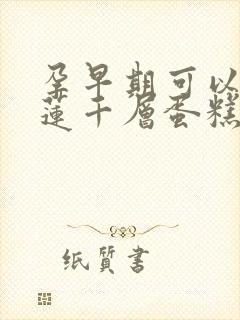 孕早期可以
蓮千層蛋糕
纸質書